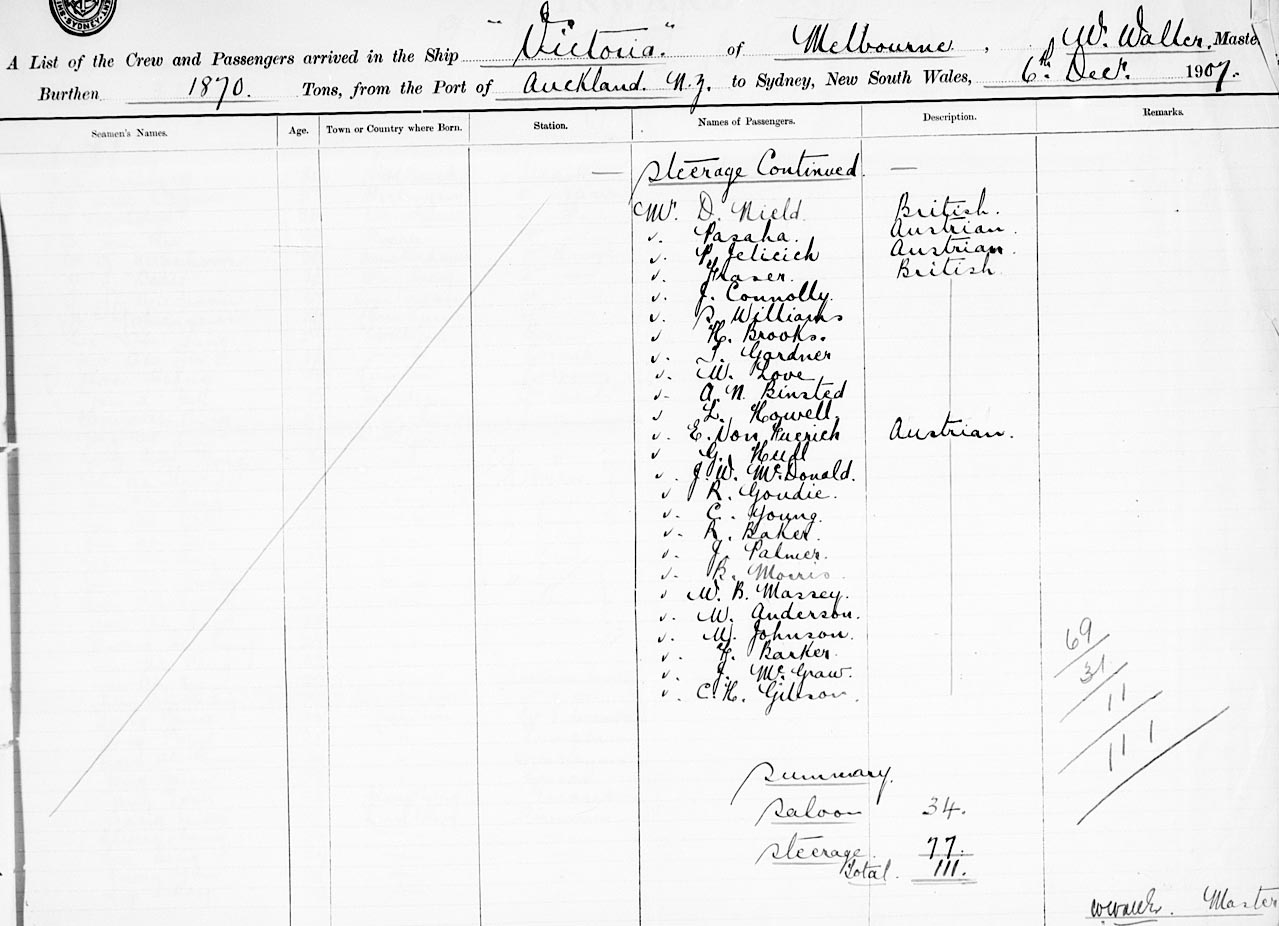 SYDNEY
A List of the Crew and Passengers arrived in the Ship "Victoria" of Melbourne, W. Waller, Maste
Burthen 1870. Tons, from the Port of Auckland. N.Z. to Sydney, New South Wales, 6th Decr. 1907.
Seamen's Names. Age. Town or Country where Born. Station. Names of Passengers. Description. Remarks.
— Steerage Continued. —
Mr. D. Nield. British.
Pasaha. Austrian.
P. Jelicich Austrian.
Fraser. British.
J. Connolly.
S. Williams
H. Brooks.
T. Gardner
W. Love
A. N. Binsted
L. Howell.
E. Von Austrian.
G. Hudl
J. W. McDonald.
R. Goudie.
C. Young.
R. Baker.
J. Palmer.
R. Morris.
W. B. Massey.
W. Anderson.
W. Johnson.
F. Barker.
J. McGraw.
C. H. Gibson.
69
31
11
111
Summary.
Saloon 34.
Steerage. 77.
Total. 111.
Master